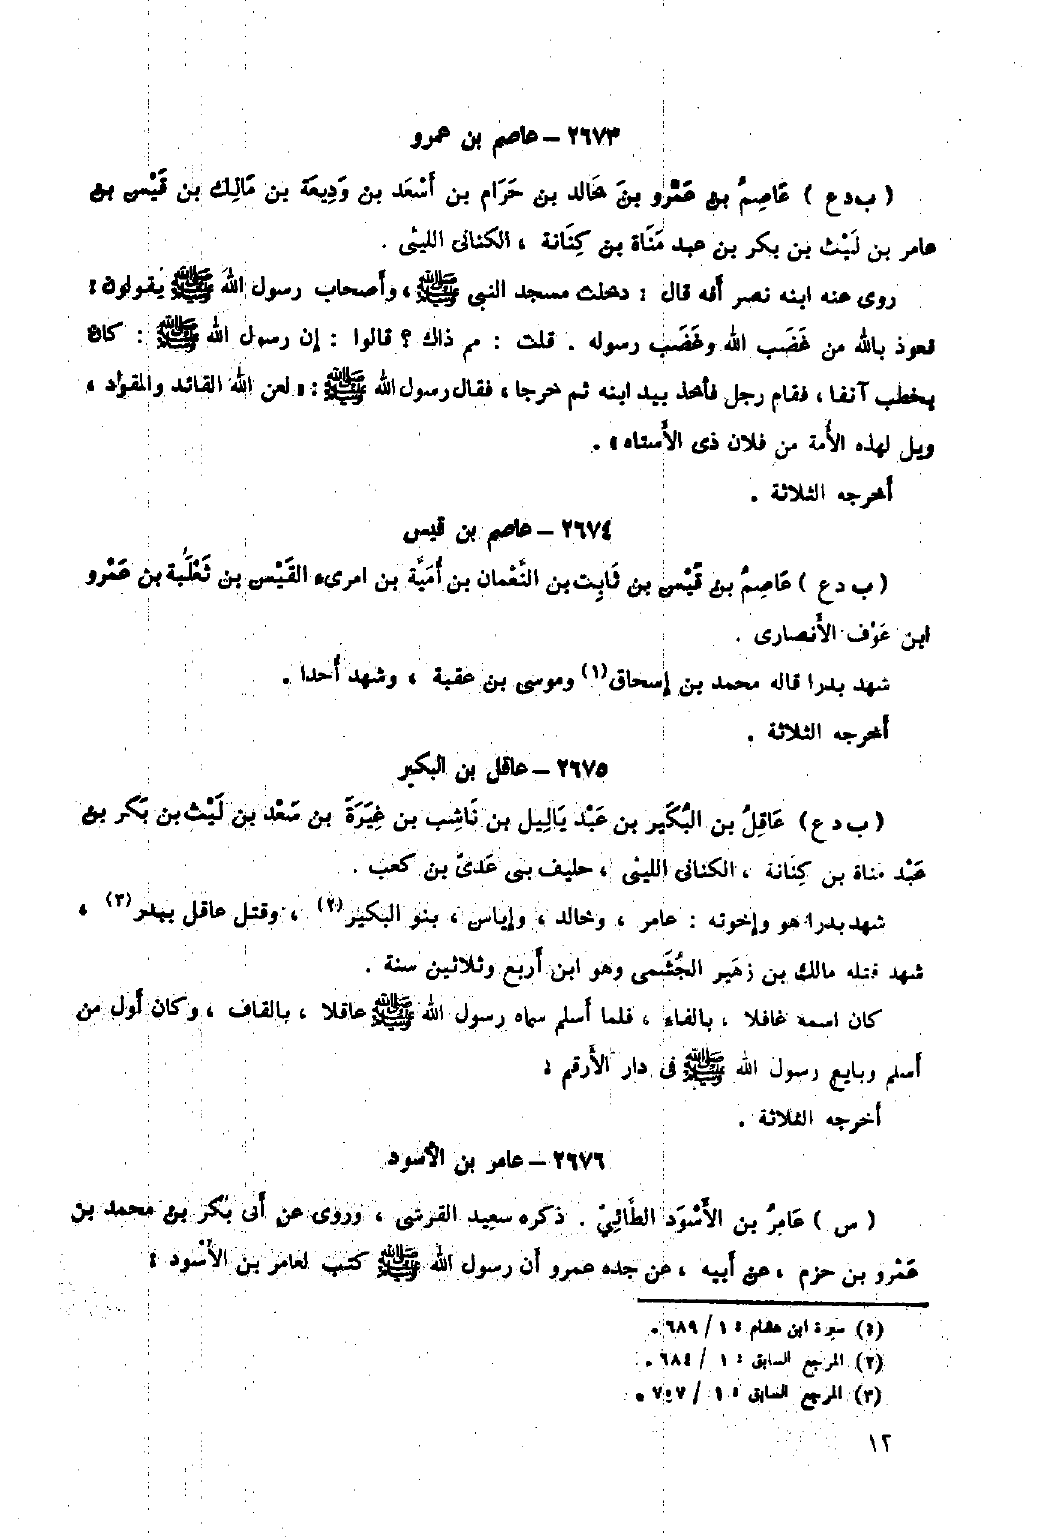 ٢٦٧٣ – عاصم بن عمرو
( ب د ع ) عَاصِمُ بن عَمْرو بن خَالد بن حَرَام بن أَسْعَد بن وَدِيعَة بن مَالِك بن قَيْس بن
عامر بن لَيْث بن بكر بن عبد مَنَاة بن كِنَانة ، الكنانى الليثى .
روى عنه ابنه نصر أنه قال : دخلت مسجد النبي ﷺ ، وأصحاب رسول الله ﷺ يقولون :
نعوذ بالله من غَضَب الله وغَضَب رسوله . قلت : مم ذاك ؟ قالوا : إن رسول الله ﷺ : كان
يخطب آنفا ، فقام رجل فأخذ بيد ابنه ثم خرجا ، فقال رسول الله ﷺ : « لعن الله القائد والمقواد ،
ويل لهذه الأمة من فلان ذى الأستاه » .
أخرجه الثلاثة .
٢٦٧٤ – عاصم بن قيس
( ب د ع ) عَاصِمُ بن قَيْس بن ثَابِت بن النُّعْمان بن أُمَيَّة بن امرىء القَيْس بن ثَعْلَبة بن عَمْرو
ابن عَوْف الأنصارى .
شهد بدرا قاله محمد بن إسحاق(١) وموسى بن عقبة ، وشهد أحدا .
أخرجه الثلاثة .
٢٦٧٥ – عاقل بن البكير
( ب د ع ) عَاقِلُ بن البُكَير بن عَبْد يَالِيل بن نَاشِب بن غِيَرَةَ بن سَعْد بن لَيْث بن بَكْر بن
عَبْد مناة بن كِنَانة ، الكنانى الليثى ، حليف بنى عَدىّ بن كعب .
شهد بدرا هو وإخوته : عامر ، وخالد ، وإياس ، بنو البكير(٢) ، وقتل عاقل ببدر(٣) ،
شهد قتله مالك بن زهَير الجُشَمى وهو ابن أربع وثلاثين سنة .
كان اسمه غافلا ، بالفاء ، فلما أسلم سماه رسول الله ﷺ عاقلا ، بالقاف ، وكان أول من
أسلم وبايع رسول الله ﷺ فى دار الأرقم :
أخرجه الثلاثة .
٢٦٧٦ – عامر بن الأسود
( س ) عَامِرُ بن الأَسْوَد الطَّائِيّ . ذكره سعيد القرشى ، وروى عن أبى بَكْر بن محمد بن
عَمْرو بن حزم ، عن أبيه ، عن جده عمرو أن رسول الله ﷺ كتب لعامر بن الأسْود :
(١) سيرة ابن هشام : ١ / ٦٨٩ .
(٢) المرجع السابق : ١ / ٦٨٤ .
(٣) المرجع السابق : ١ / ٧٠٧ .
١٢